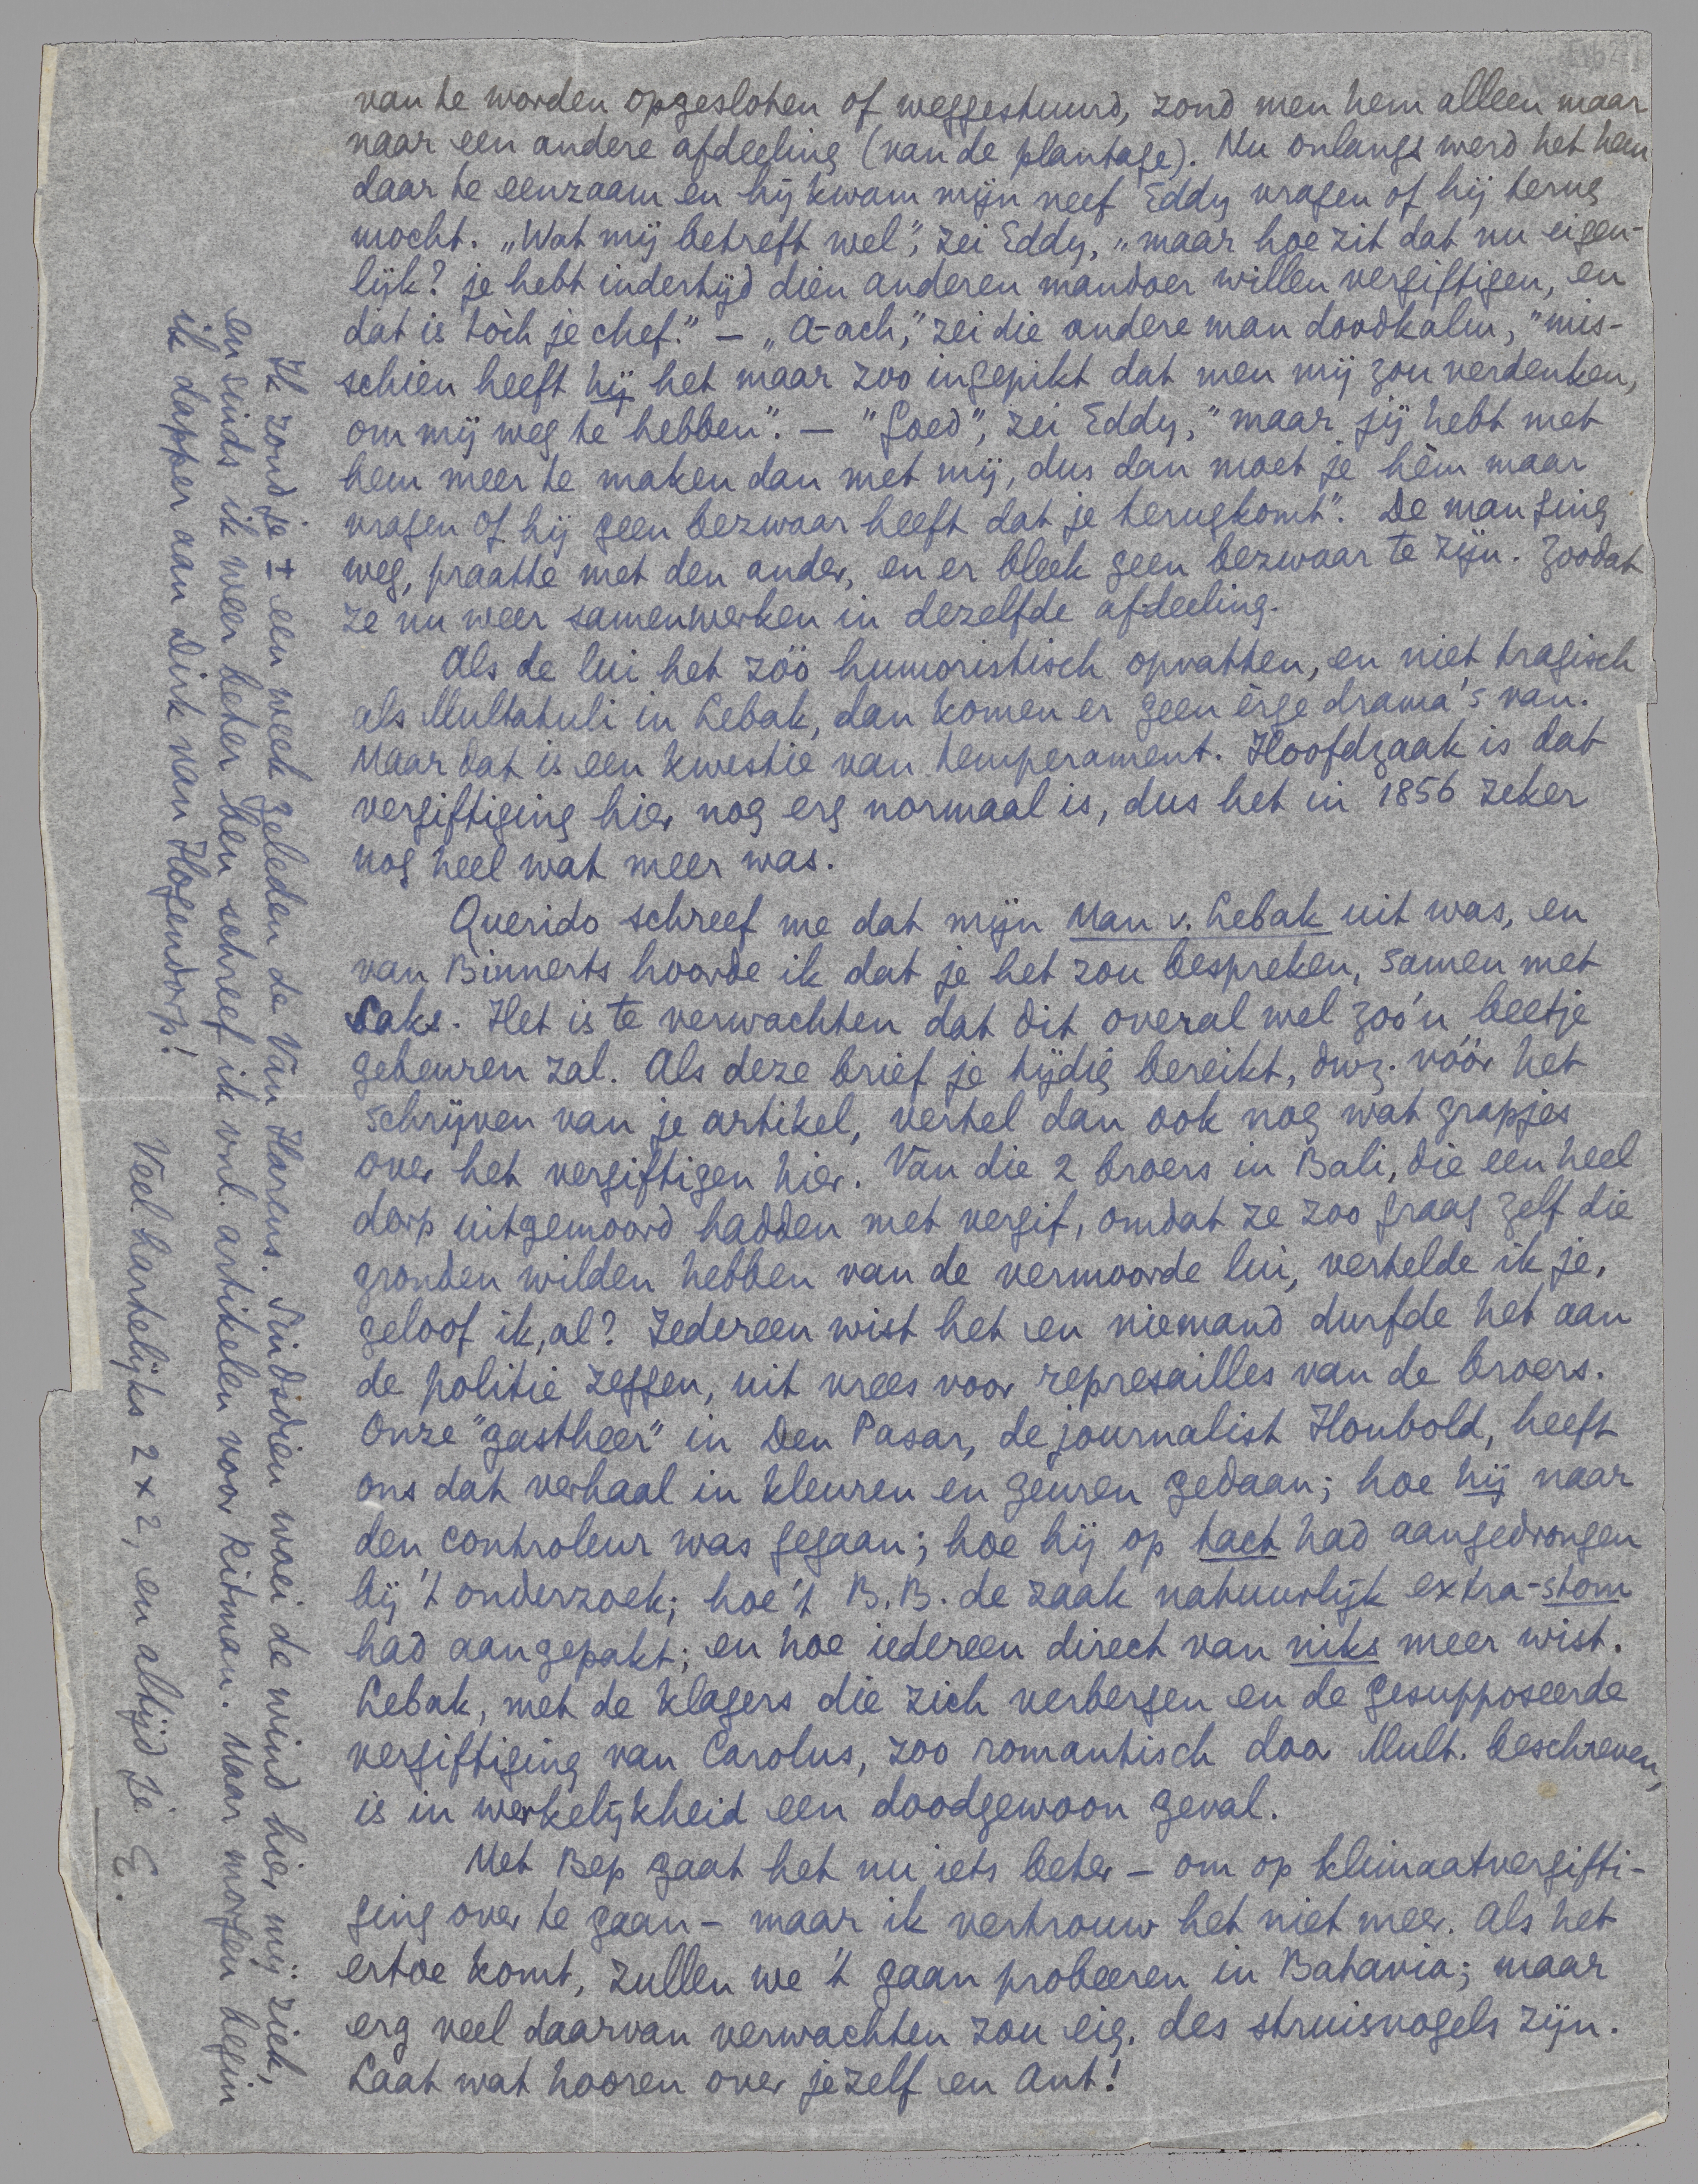 van te worden opgesloten of weggestuurd, zond men hem alleen maar
naar een andere afdeeling (van de plantage). Nu onlangs werd het hem
daar te eenzaam en hij kwam mijn neef Eddy vragen of hij terug
mocht. „Wat mij betreft wel", zei Eddy, „maar hoe zit dat nu eigen-
lijk? je hebt indertijd dien anderen mandoer willen vergiftigen, en
dat is tòch je chef." — „A-ach," zei die andere man doodkalm, "mis-
schien heeft hij het maar zoo ingepikt dat men mij zou verdenken,
om mij weg te hebben". — "Goed", zei Eddy, "maar jij hebt met
hem meer te maken dan met mij, dus dan moet je hèm maar
vragen of hij geen bezwaar heeft dat je terugkomt". De man ging
weg, praatte met den ander, en er bleek geen bezwaar te zijn. Zoodat
ze nu weer samenwerken in dezelfde afdeeling.
Als de lui het zóó humoristisch opvatten, en niet tragisch
als Multatuli in Lebak, dan komen er geen èrge drama's van.
Maar dat is een kwestie van temperament. Hoofdzaak is dat
vergiftiging hier nog erg normaal is, dus het in 1856 zeker
nog heel wat meer was.
Querido schreef me dat mijn Man v. Lebak uit was, en
van Binnerts hoorde ik dat je het zou bespreken, samen met
Saks. Het is te verwachten dat dit overal wel zoo'n beetje
gebeuren zal. Als deze brief je tijdig bereikt, dwz. vóór het
schrijven van je artikel, vertel dan ook nog wat grapjes
over het vergiftigen hier. Van die 2 broers in Bali, die een heel
dorp uitgemoord hadden met vergif, omdat ze zoo graag zelf die
gronden wilden hebben van de vermoorde lui, vertelde ik je,
geloof ik, al? Iedereen wist het en niemand durfde het aan
de politie zeggen, uit vrees voor represailles van de broers.
Onze "gastheer" in Den Pasar, de journalist Houbold, heeft
ons dat verhaal in kleuren en geuren gedaan; hoe hij naar
den controleur was gegaan; hoe hij op tact had aangedrongen
bij 't onderzoek; hoe 't B.B. de zaak natuurlijk extra-stom
had aangepakt; en hoe iedereen direct van niks meer wist.
Lebak, met de klagers die zich verbergen en de gesupposeerde
vergiftiging van Carolus, zoo romantisch door Mult. beschreven,
is in werkelijkheid een doodgewoon geval.
Met Bep gaat het nu iets beter — om op klimaatvergifti-
ging over te gaan — maar ik vertrouw het niet meer. Als het
ertoe komt, zullen we 't gaan probeeren in Batavia; maar
erg veel daarvan verwachten zou eig. des struisvogels zijn.
Laat wat hooren over jezelf en Ant!
Ik zond je ± een week geleden de Van Harens. Sindsdien woei de wind hier mij ziek,
en sinds ik weer beter ben schreef ik vnl. artikelen voor Ritman. Maar morgen begin
ik dapper aan Dirk van Hogendorp!
Veel hartelijks 2 x 2, en altijd je E.